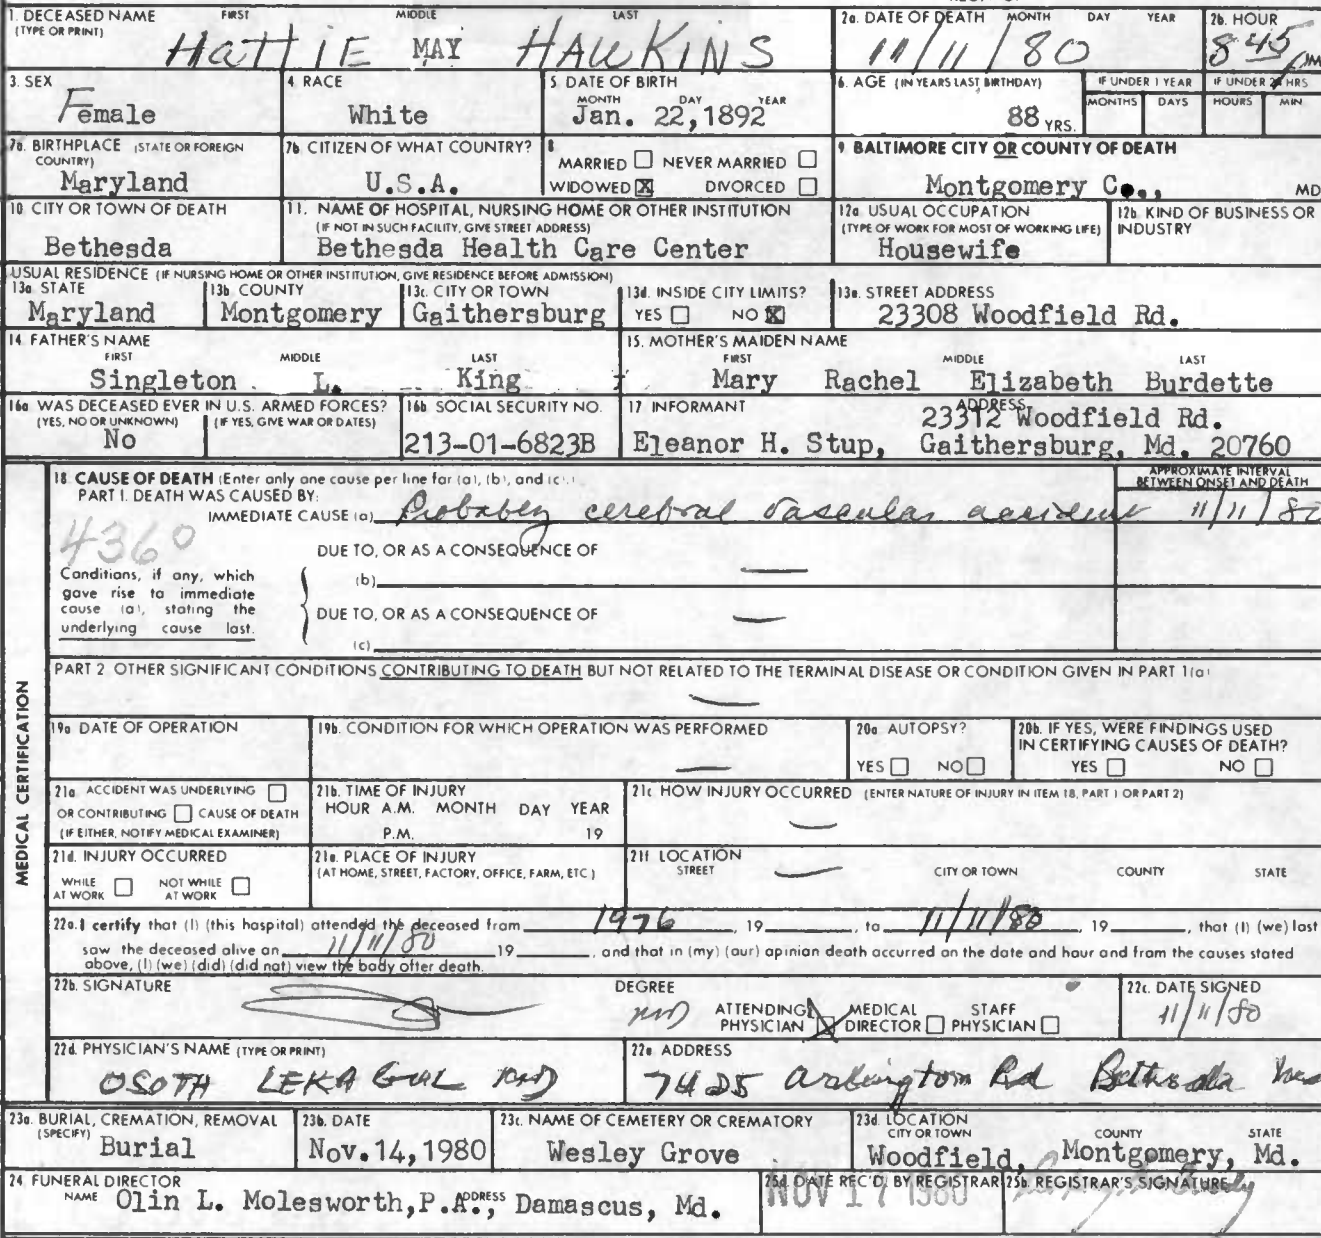 1. DECEASED NAME FIRST MIDDLE LAST
(TYPE OR PRINT)
HattIE MAY HAWKINS
2a. DATE OF DEATH MONTH DAY YEAR
11/11/80
2b. HOUR
8 45
3. SEX
Female
4. RACE
White
5. DATE OF BIRTH
MONTH DAY YEAR
Jan. 22,1892
6. AGE (IN YEARS LAST BIRTHDAY)
88 YRS.
IF UNDER 1 YEAR
MONTHS DAYS
IF UNDER HRS
HOURS MIN
7a. BIRTHPLACE (STATE OR FOREIGN
COUNTRY)
Maryland
7b. CITIZEN OF WHAT COUNTRY?
U.S.A.
8
MARRIED NEVER MARRIED
WIDOWED X DIVORCED
9. BALTIMORE CITY OR COUNTY OF DEATH
Montgomery Co., MD
10. CITY OR TOWN OF DEATH
Bethesda
11. NAME OF HOSPITAL, NURSING HOME OR OTHER INSTITUTION
(IF NOT IN SUCH FACILITY, GIVE STREET ADDRESS)
Bethesda Health Care Center
12a. USUAL OCCUPATION
(TYPE OF WORK FOR MOST OF WORKING LIFE)
Housewife
12b. KIND OF BUSINESS OR
INDUSTRY
USUAL RESIDENCE (IF NURSING HOME OR OTHER INSTITUTION, GIVE RESIDENCE BEFORE ADMISSION)
13a. STATE
Maryland
13b. COUNTY
Montgomery
13c. CITY OR TOWN
Gaithersburg
13d. INSIDE CITY LIMITS?
YES NO X
13e. STREET ADDRESS
23308 Woodfield Rd.
14. FATHER'S NAME
FIRST MIDDLE LAST
Singleton L. King
15. MOTHER'S MAIDEN NAME
FIRST MIDDLE LAST
Mary Rachel Elizabeth Burdette
16a. WAS DECEASED EVER IN U.S. ARMED FORCES?
(YES, NO OR UNKNOWN) (IF YES, GIVE WAR OR DATES)
No
16b. SOCIAL SECURITY NO.
213-01-6823B
17. INFORMANT ADDRESS
23312 Woodfield Rd.
Eleanor H. Stup, Gaithersburg, Md. 20760
MEDICAL CERTIFICATION
18. CAUSE OF DEATH (Enter only one cause per line for (a), (b), and (c).)
PART I. DEATH WAS CAUSED BY:
APPROXIMATE INTERVAL
BETWEEN ONSET AND DEATH
IMMEDIATE CAUSE (a) Probably cerebral vascular accident 11/11/80
4360
DUE TO, OR AS A CONSEQUENCE OF
Conditions, if any, which
gave rise to immediate
cause (a), stating the
underlying cause last.
(b)
DUE TO, OR AS A CONSEQUENCE OF
(c)
PART 2. OTHER SIGNIFICANT CONDITIONS CONTRIBUTING TO DEATH BUT NOT RELATED TO THE TERMINAL DISEASE OR CONDITION GIVEN IN PART 1(a)
19a. DATE OF OPERATION
19b. CONDITION FOR WHICH OPERATION WAS PERFORMED
20a. AUTOPSY?
YES NO
20b. IF YES, WERE FINDINGS USED
IN CERTIFYING CAUSES OF DEATH?
YES NO
21a. ACCIDENT WAS UNDERLYING
OR CONTRIBUTING CAUSE OF DEATH
(IF EITHER, NOTIFY MEDICAL EXAMINER)
21b. TIME OF INJURY
HOUR A.M. MONTH DAY YEAR
P.M. 19
21c. HOW INJURY OCCURRED (ENTER NATURE OF INJURY IN ITEM 18, PART 1 OR PART 2)
21d. INJURY OCCURRED
WHILE AT WORK NOT WHILE AT WORK
21e. PLACE OF INJURY
(AT HOME, STREET, FACTORY, OFFICE, FARM, ETC.)
21f. LOCATION
STREET CITY OR TOWN COUNTY STATE
22a. I certify that (I) (this hospital) attended the deceased from 1976, 19 , to 11/11/80, 19 , that (I) (we) last
saw the deceased alive on 11/11/80 19 , and that in (my) (our) opinion death occurred on the date and hour and from the causes stated
above, (I) (we) (did) (did not) view the body after death.
22b. SIGNATURE DEGREE
MD
ATTENDING PHYSICIAN X MEDICAL DIRECTOR STAFF PHYSICIAN
22c. DATE SIGNED
11/11/80
22d. PHYSICIAN'S NAME (TYPE OR PRINT)
OSOTH LEKAGUL MD
22e. ADDRESS
7425 Arlington Rd Bethesda
23a. BURIAL, CREMATION, REMOVAL
(SPECIFY)
Burial
23b. DATE
Nov.14,1980
23c. NAME OF CEMETERY OR CREMATORY
Wesley Grove
23d. LOCATION
CITY OR TOWN COUNTY STATE
Woodfield, Montgomery, Md.
24. FUNERAL DIRECTOR
NAME ADDRESS
Olin L. Molesworth,P.A., Damascus, Md.
25a. DATE REC'D. BY REGISTRAR
NOV 17 1980
25b. REGISTRAR'S SIGNATURE